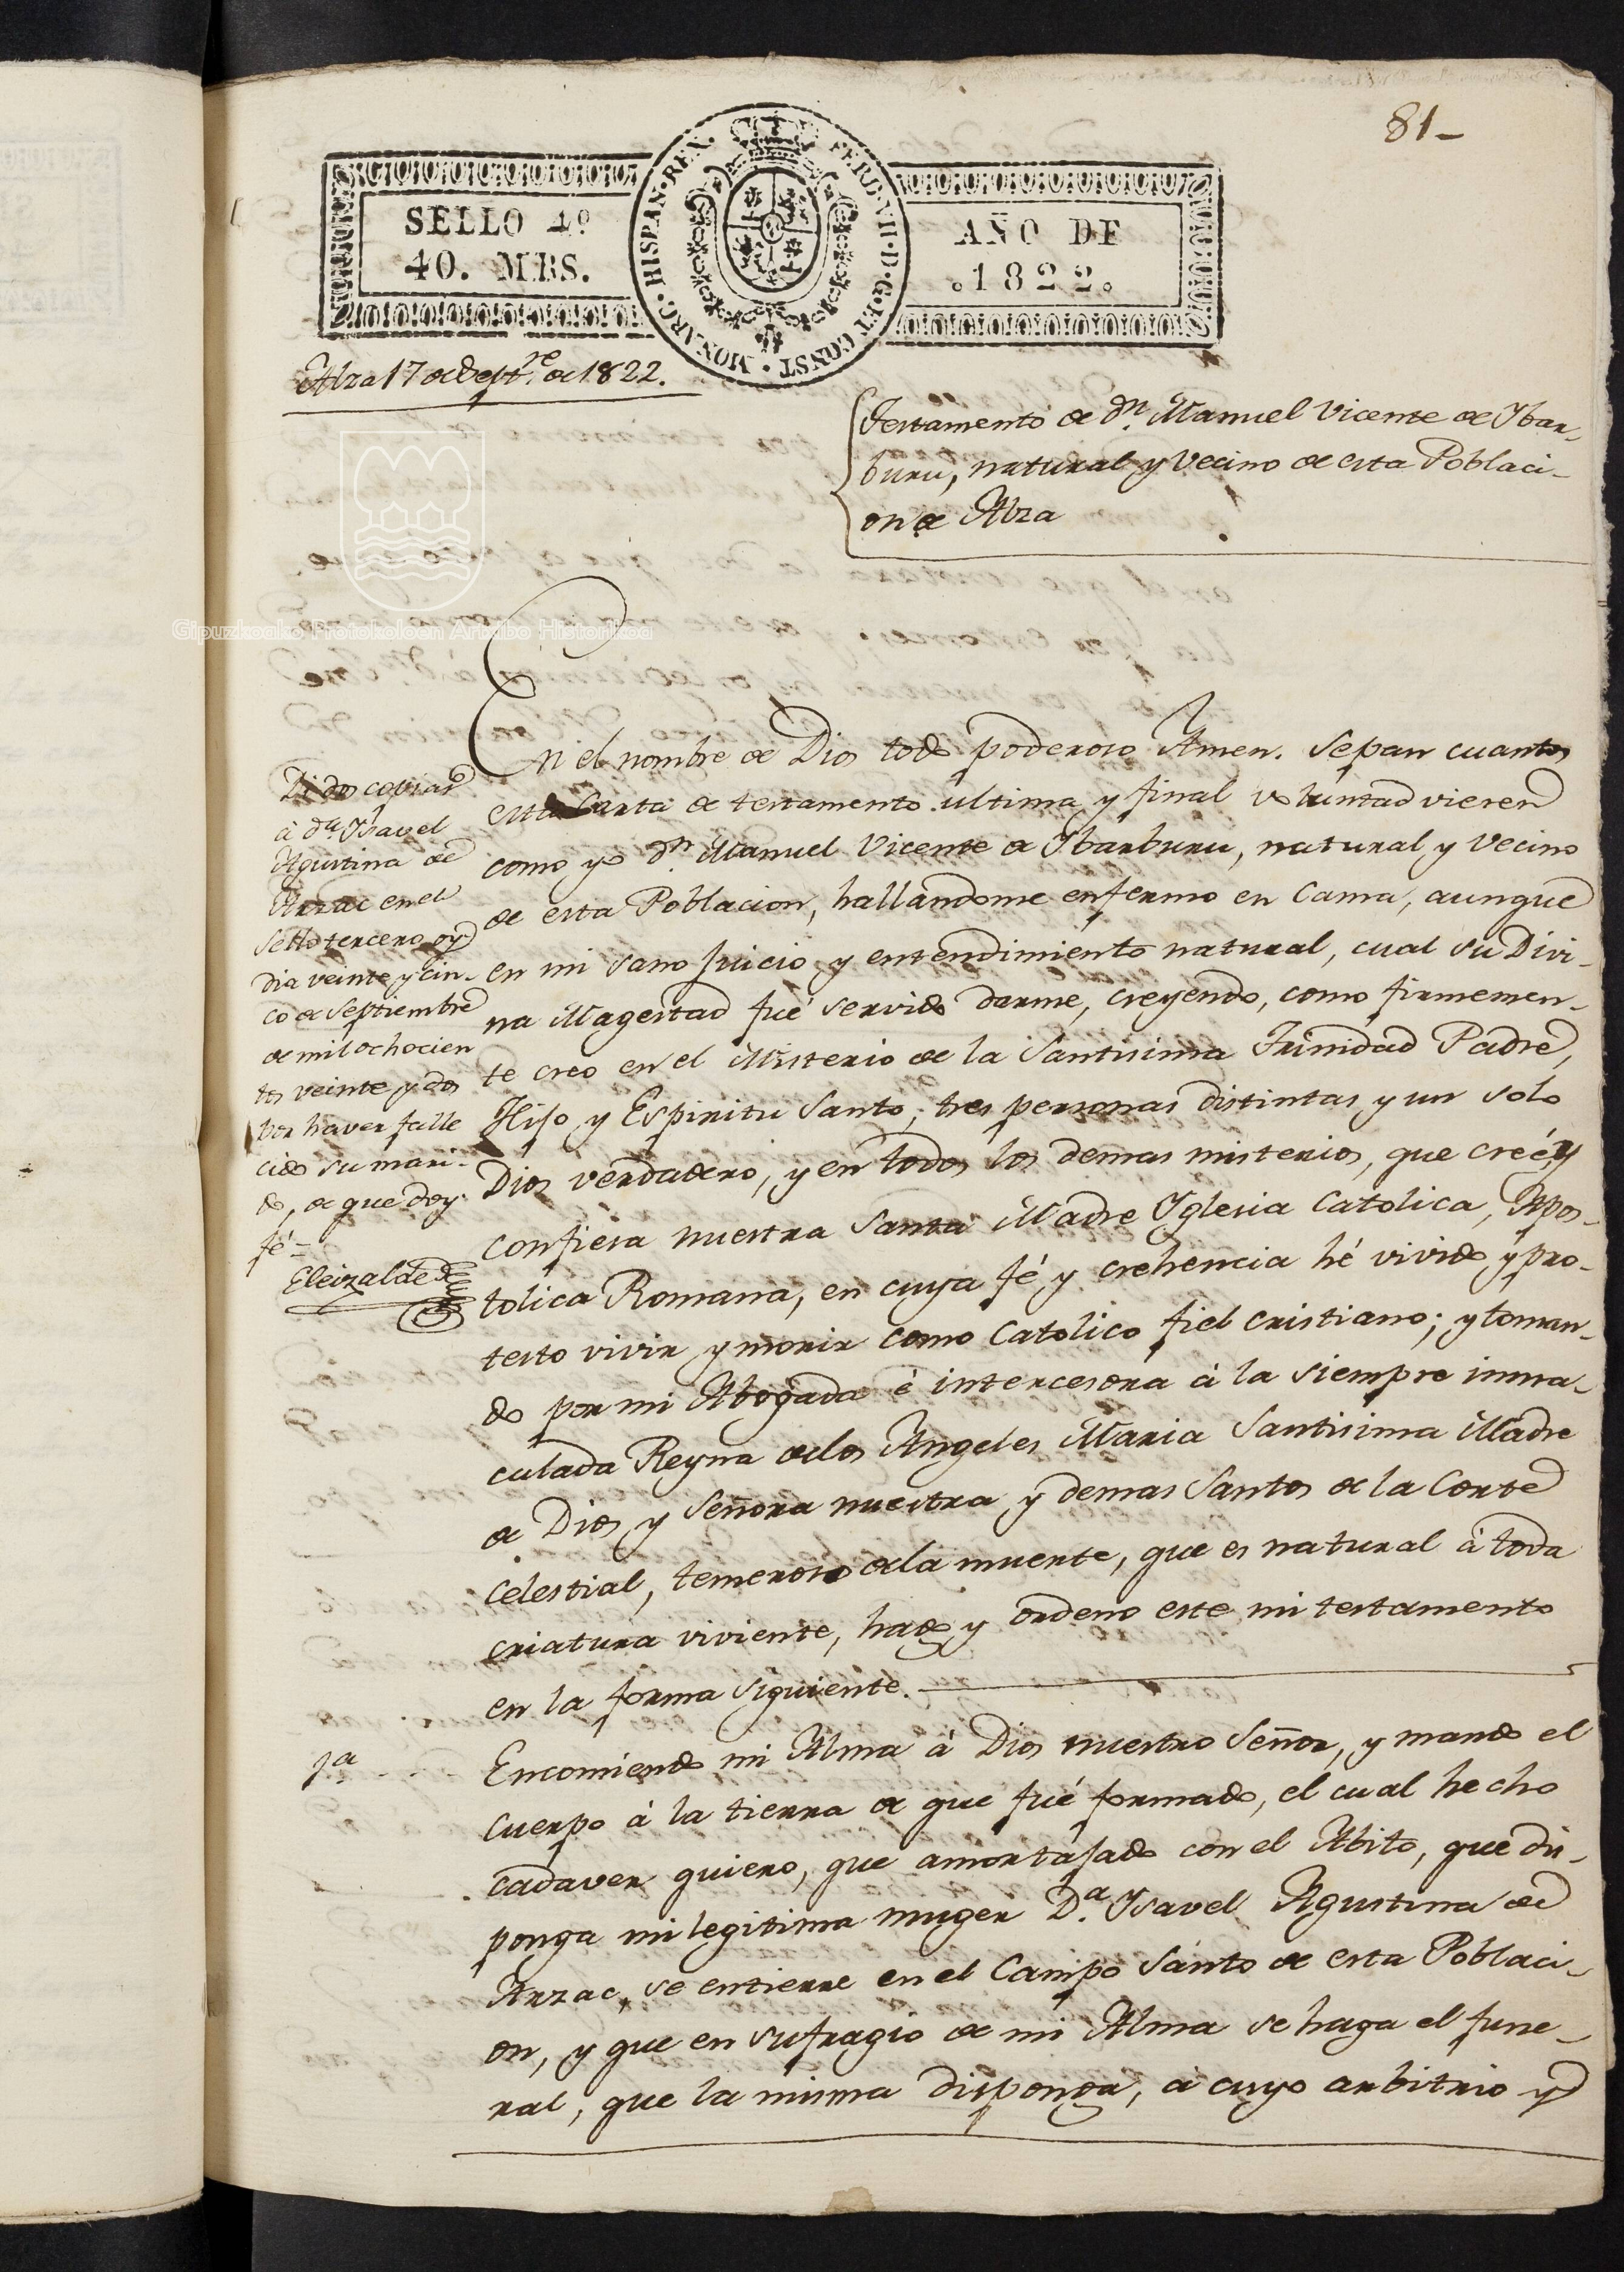 81_
SELLO 4º
40. MRS.
MONARC · HISPAN · REX · FERD · VII · D · G · ET CONST ·
AÑO DE
.1822.
Alza 17 de Sept.re de 1822.
Testamento de dn. Manuel Vicente de Ybar-
buru, natural y Vecino de esta Poblaci-
on de Alza
Gipuzkoako Protokoloen Artxibo Historikoa
En el nombre de Dios todo poderoso Amen. Sepan cuantos
esta Carta de testamento ultima y final voluntad vieren
como yo dn. Manuel Vicente de Ybarburu, natural y Vecino
de esta Poblacion, hallandome enfermo en Cama, aunque
en mi sano Juicio y entendimiento natural, cual su Divi-
na Magestad fué servido darme, creyendo, como firmemen-
te creo en el Misterio de la Santisima Trinidad Padre,
Hijo y Espiritu Santo, tres personas distintas y un solo
Dios verdadero, y en todos los demas misterios, que creé y
confiesa nuestra Santa Madre Yglesia Catolica, Apos-
tolica Romana, en cuya fé y crehencia hé vivido y pro-
testo vivir y morir como Catolico fiel cristiano; y toman-
do por mi Abogada é intercesora á la siempre inma-
culada Reyna de los Angeles Maria Santisima Madre
de Dios y Señora nuestra y demas Santos de la Corte
Celestial, temeroso de la muerte, que es natural á toda
criatura viviente, hago y ordeno este mi testamento
en la forma siguiente.
Di dos copias
á da. Ysavel
Agustina de
Arzac en el
Sello tercero oy
dia veinte y cin-
co de Septiembre
de mil ochocien
tos veinte y dos
por haver falle
cido su mari-
do, de que doy
fé-
Eleizalde
1a - - - Encomiendo mi Alma á Dios nuestro Señor, y mando el
cuerpo á la tierra de que fué formado, el cual hecho
cadaver quiero, que amortajado con el Abito, que dis-
ponga mi legitima muger D.a Ysavel Agustina de
Arzac, se entierre en el Campo Santo de esta Poblaci-
on, y que en sufragio de mi Alma se haga el fune-
ral, que la misma disponga, á cuyo arbitrio y